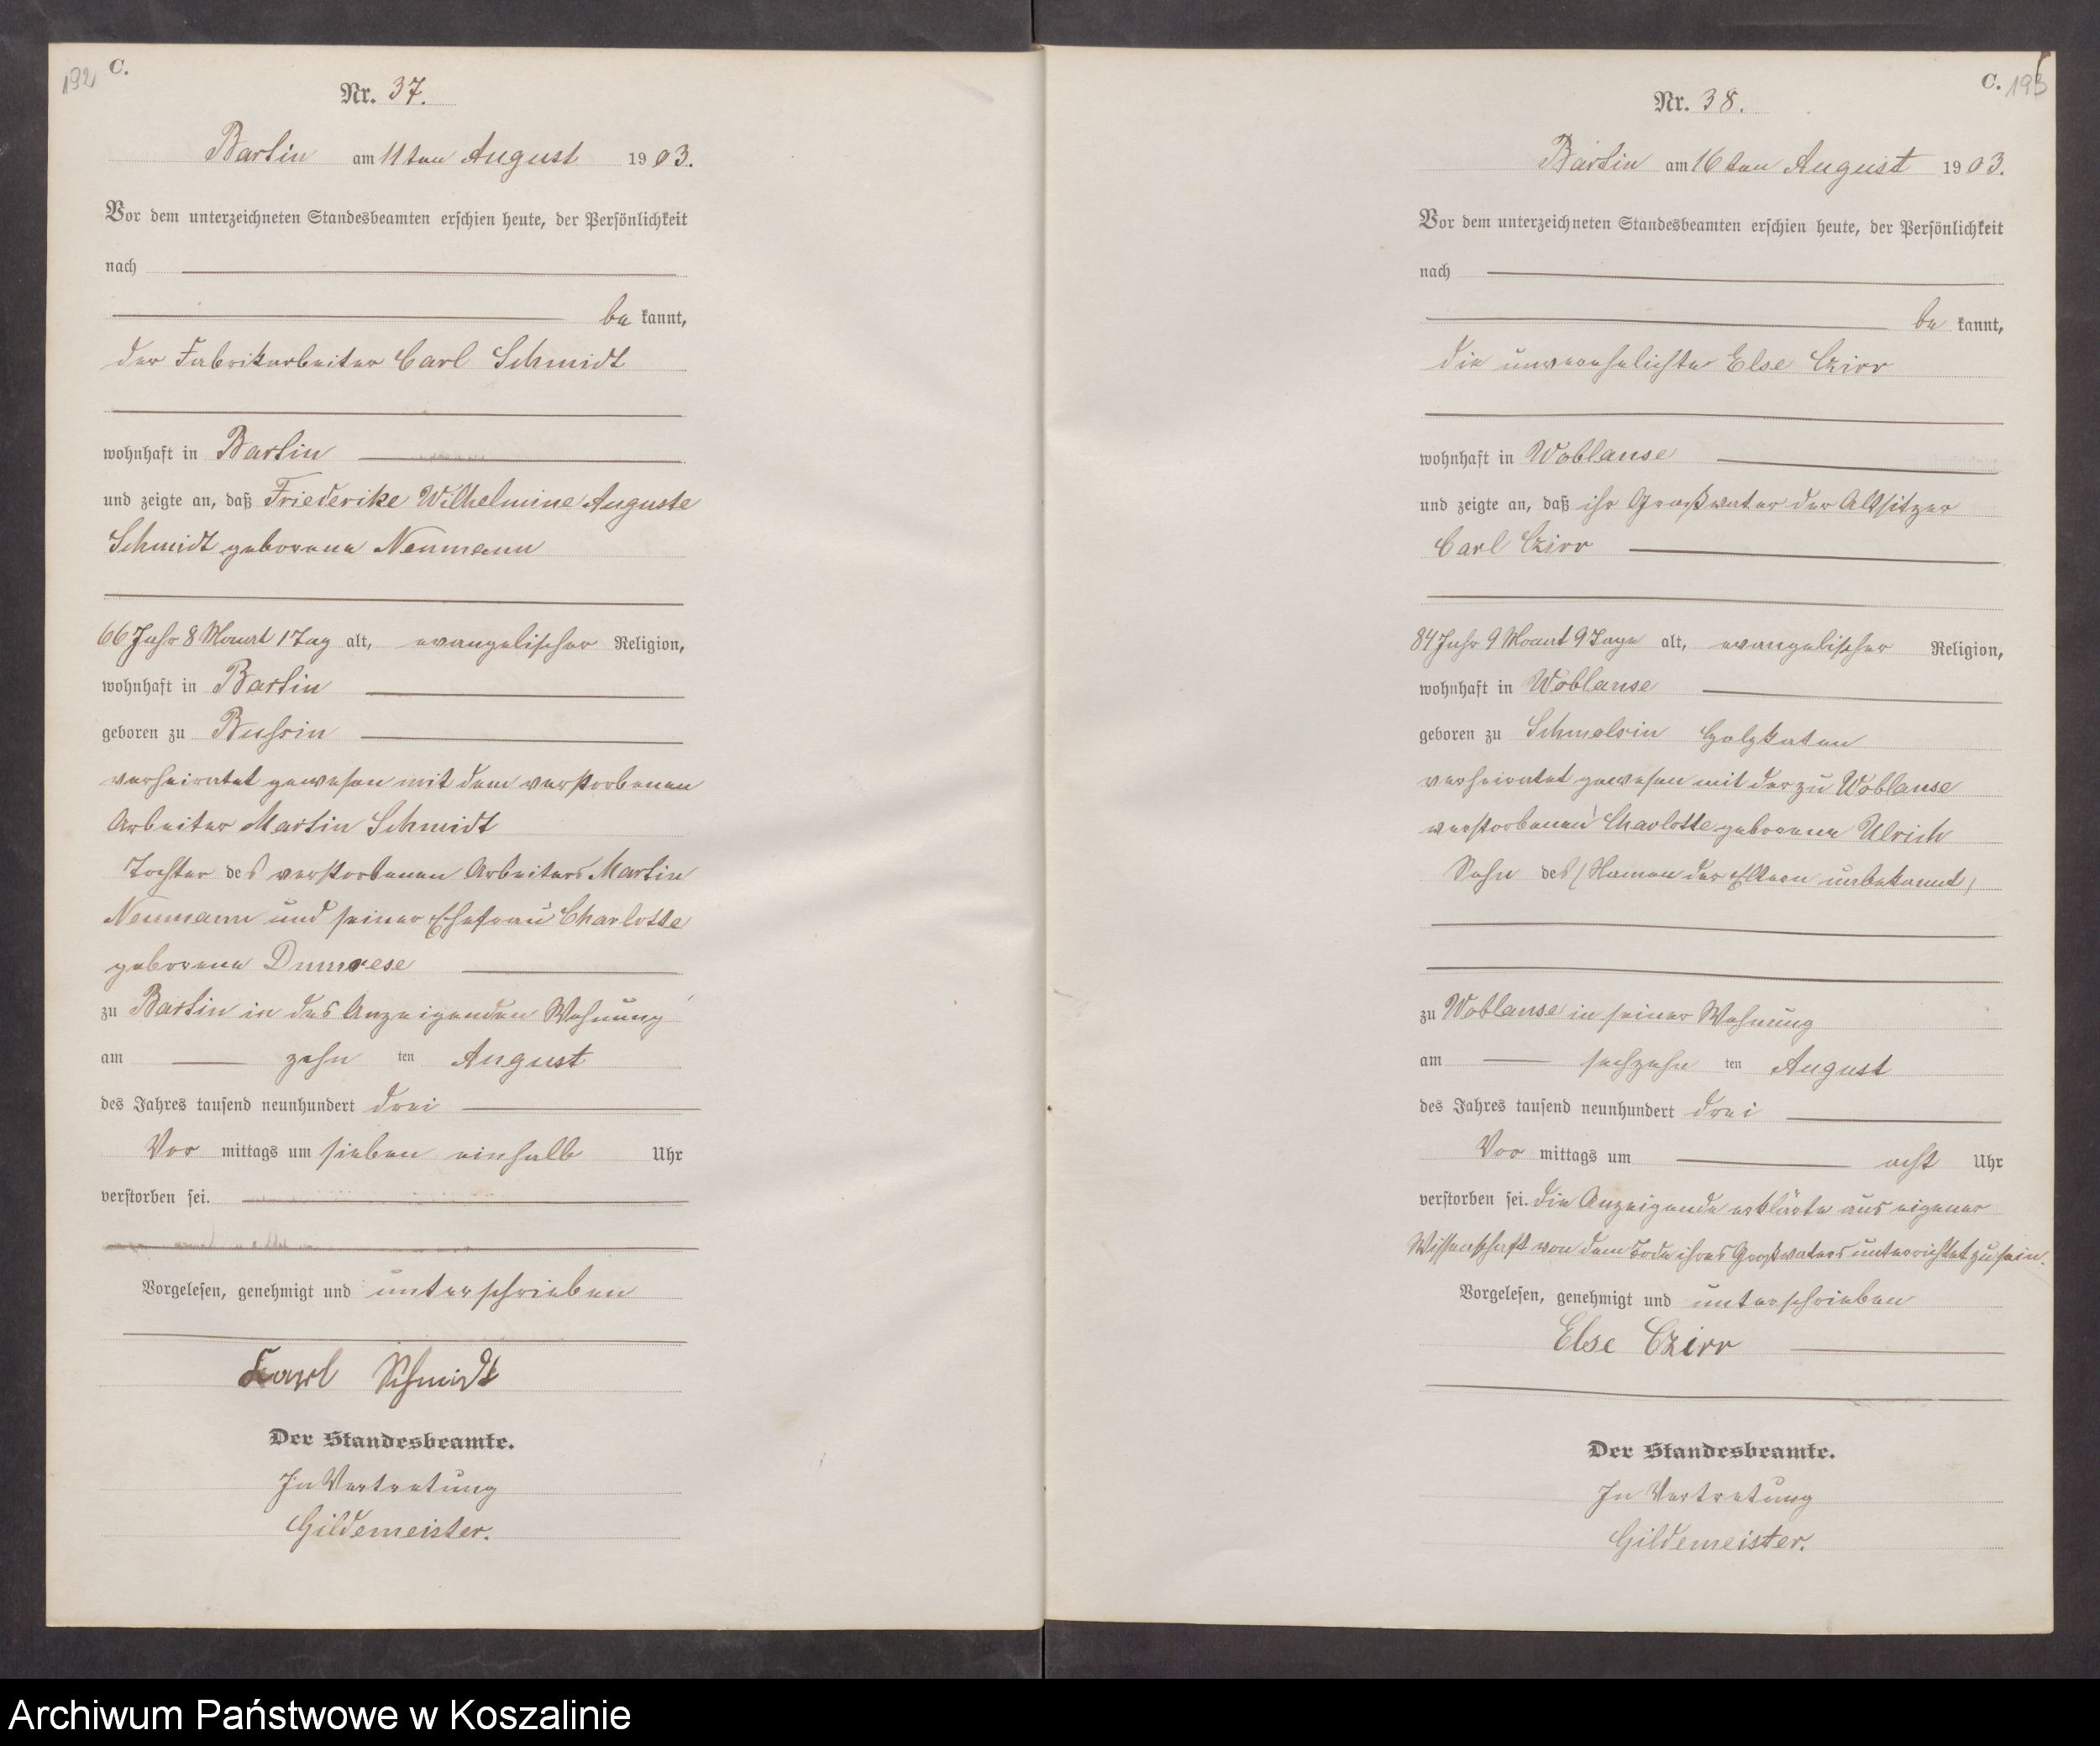 192 C.
Nr. 37.
Bartin am 11ten August 1903.
Vor dem unterzeichneten Standesbeamten erschien heute, der Persönlichkeit
nach
be kannt,
der Fabrikarbeiter Carl Schmidt
wohnhaft in Bartin
und zeigte an, daß Friederike Wilhelmine Auguste
Schmidt geborene Neumann
66 Jahr 8 Monat 1 Tag alt, evangelischer Religion,
wohnhaft in Bartin
geboren zu Bussin
verheiratet gewesen mit dem verstorbenen
Arbeiter Martin Schmidt
Tochter des verstorbenen Arbeiters Martin
Neumann und seiner Ehefrau Charlotte
geborene
zu Bartin in des Anzeigenden Wohnung
am zehn ten August
des Jahres tausend neunhundert drei
Vor mittags um sieben einhalb Uhr
verstorben sei.
Vorgelesen, genehmigt und unterschrieben
Karl Schmidt
Der Standesbeamte.
In Vertretung
Gildemeister.
C. 193
Nr. 38.
Bartin am 16ten August 1903.
Vor dem unterzeichneten Standesbeamten erschien heute, der Persönlichkeit
nach
be kannt,
die unverehelichte Else Czirr
wohnhaft in Woblanse
und zeigte an, daß ihr Großvater der Altsitzer
Carl Czirr
84 Jahr 9 Monat 9 Tage alt, evangelischer Religion,
wohnhaft in Woblanse
geboren zu Schmelsin Holzkaten
verheiratet gewesen mit der zu Woblanse
verstorbenen Charlotte geborene Ulrich
Sohn des (Namen der Eltern unbekannt)
zu Woblanse in seiner Wohnung
am sechzehn ten August
des Jahres tausend neunhundert drei
Vor mittags um acht Uhr
verstorben sei. Die Anzeigende erklärte aus eigener
Wissenschaft von dem Tode ihres Großvaters unterrichtet zu sein.
Vorgelesen, genehmigt und unterschrieben
Else Czirr
Der Standesbeamte.
In Vertretung
Gildemeister.
Archiwum Państwowe w Koszalinie